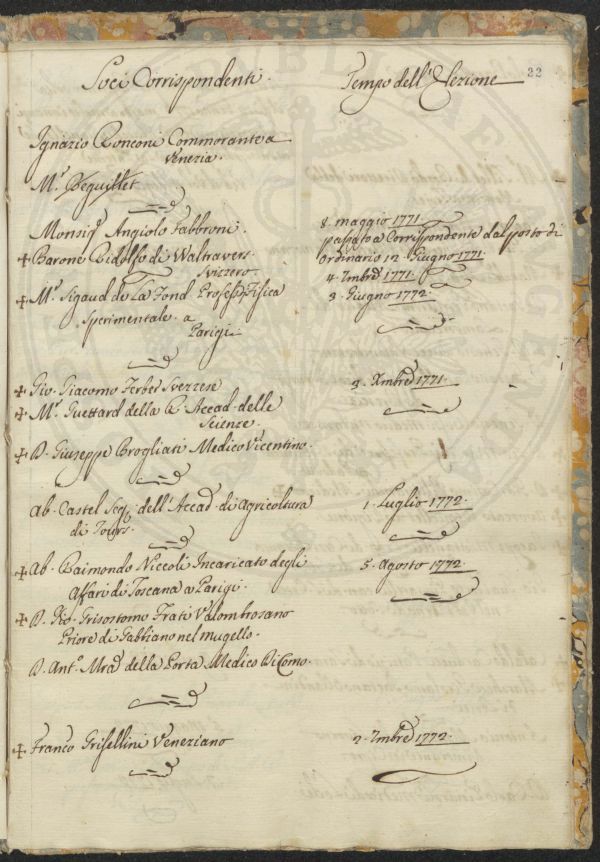 22
Soci Corrispondenti. Tempo dell'Elezione
Ignazio Ronconi Commorante a
Venezia.
M.r Beguillet
Monsig.r Angiolo Fabbroni. 8. maggio 1771.
passato a Corrispondente dal posto di
+ Barone Ridolfo di Waltravers Ordinario 12. Giugno 1771.
Svizzero. 4. 7mbre 1771.
+ M.r Sigaud de La Fond Profess. Fisica 3. Giugno 1772.
Sperimentale a
Parigi.
+ Gio. Giacomo Ferber Svezzese 3. Xmbre 1771.
+ M.r Guettard della R. Accad. delle
Scienze.
+ D. Giuseppe Brogliati Medico Vicentino.
Ab. Castel Seg. dell'Accad. di Agricoltura 1. Luglio 1772.
di Tours.
+ Ab. Raimondo Niccoli Incaricato degli 5. Agosto 1772.
Affari di Toscana a Parigi.
+ D. Gio. Grisostomo Frati Valombrosano
Priore di Gabbiano nel mugello.
D. Ant.o Mra della Porta Medico di Como.
+ Franco Grisellini Veneziano 2. 7mbre 1772.